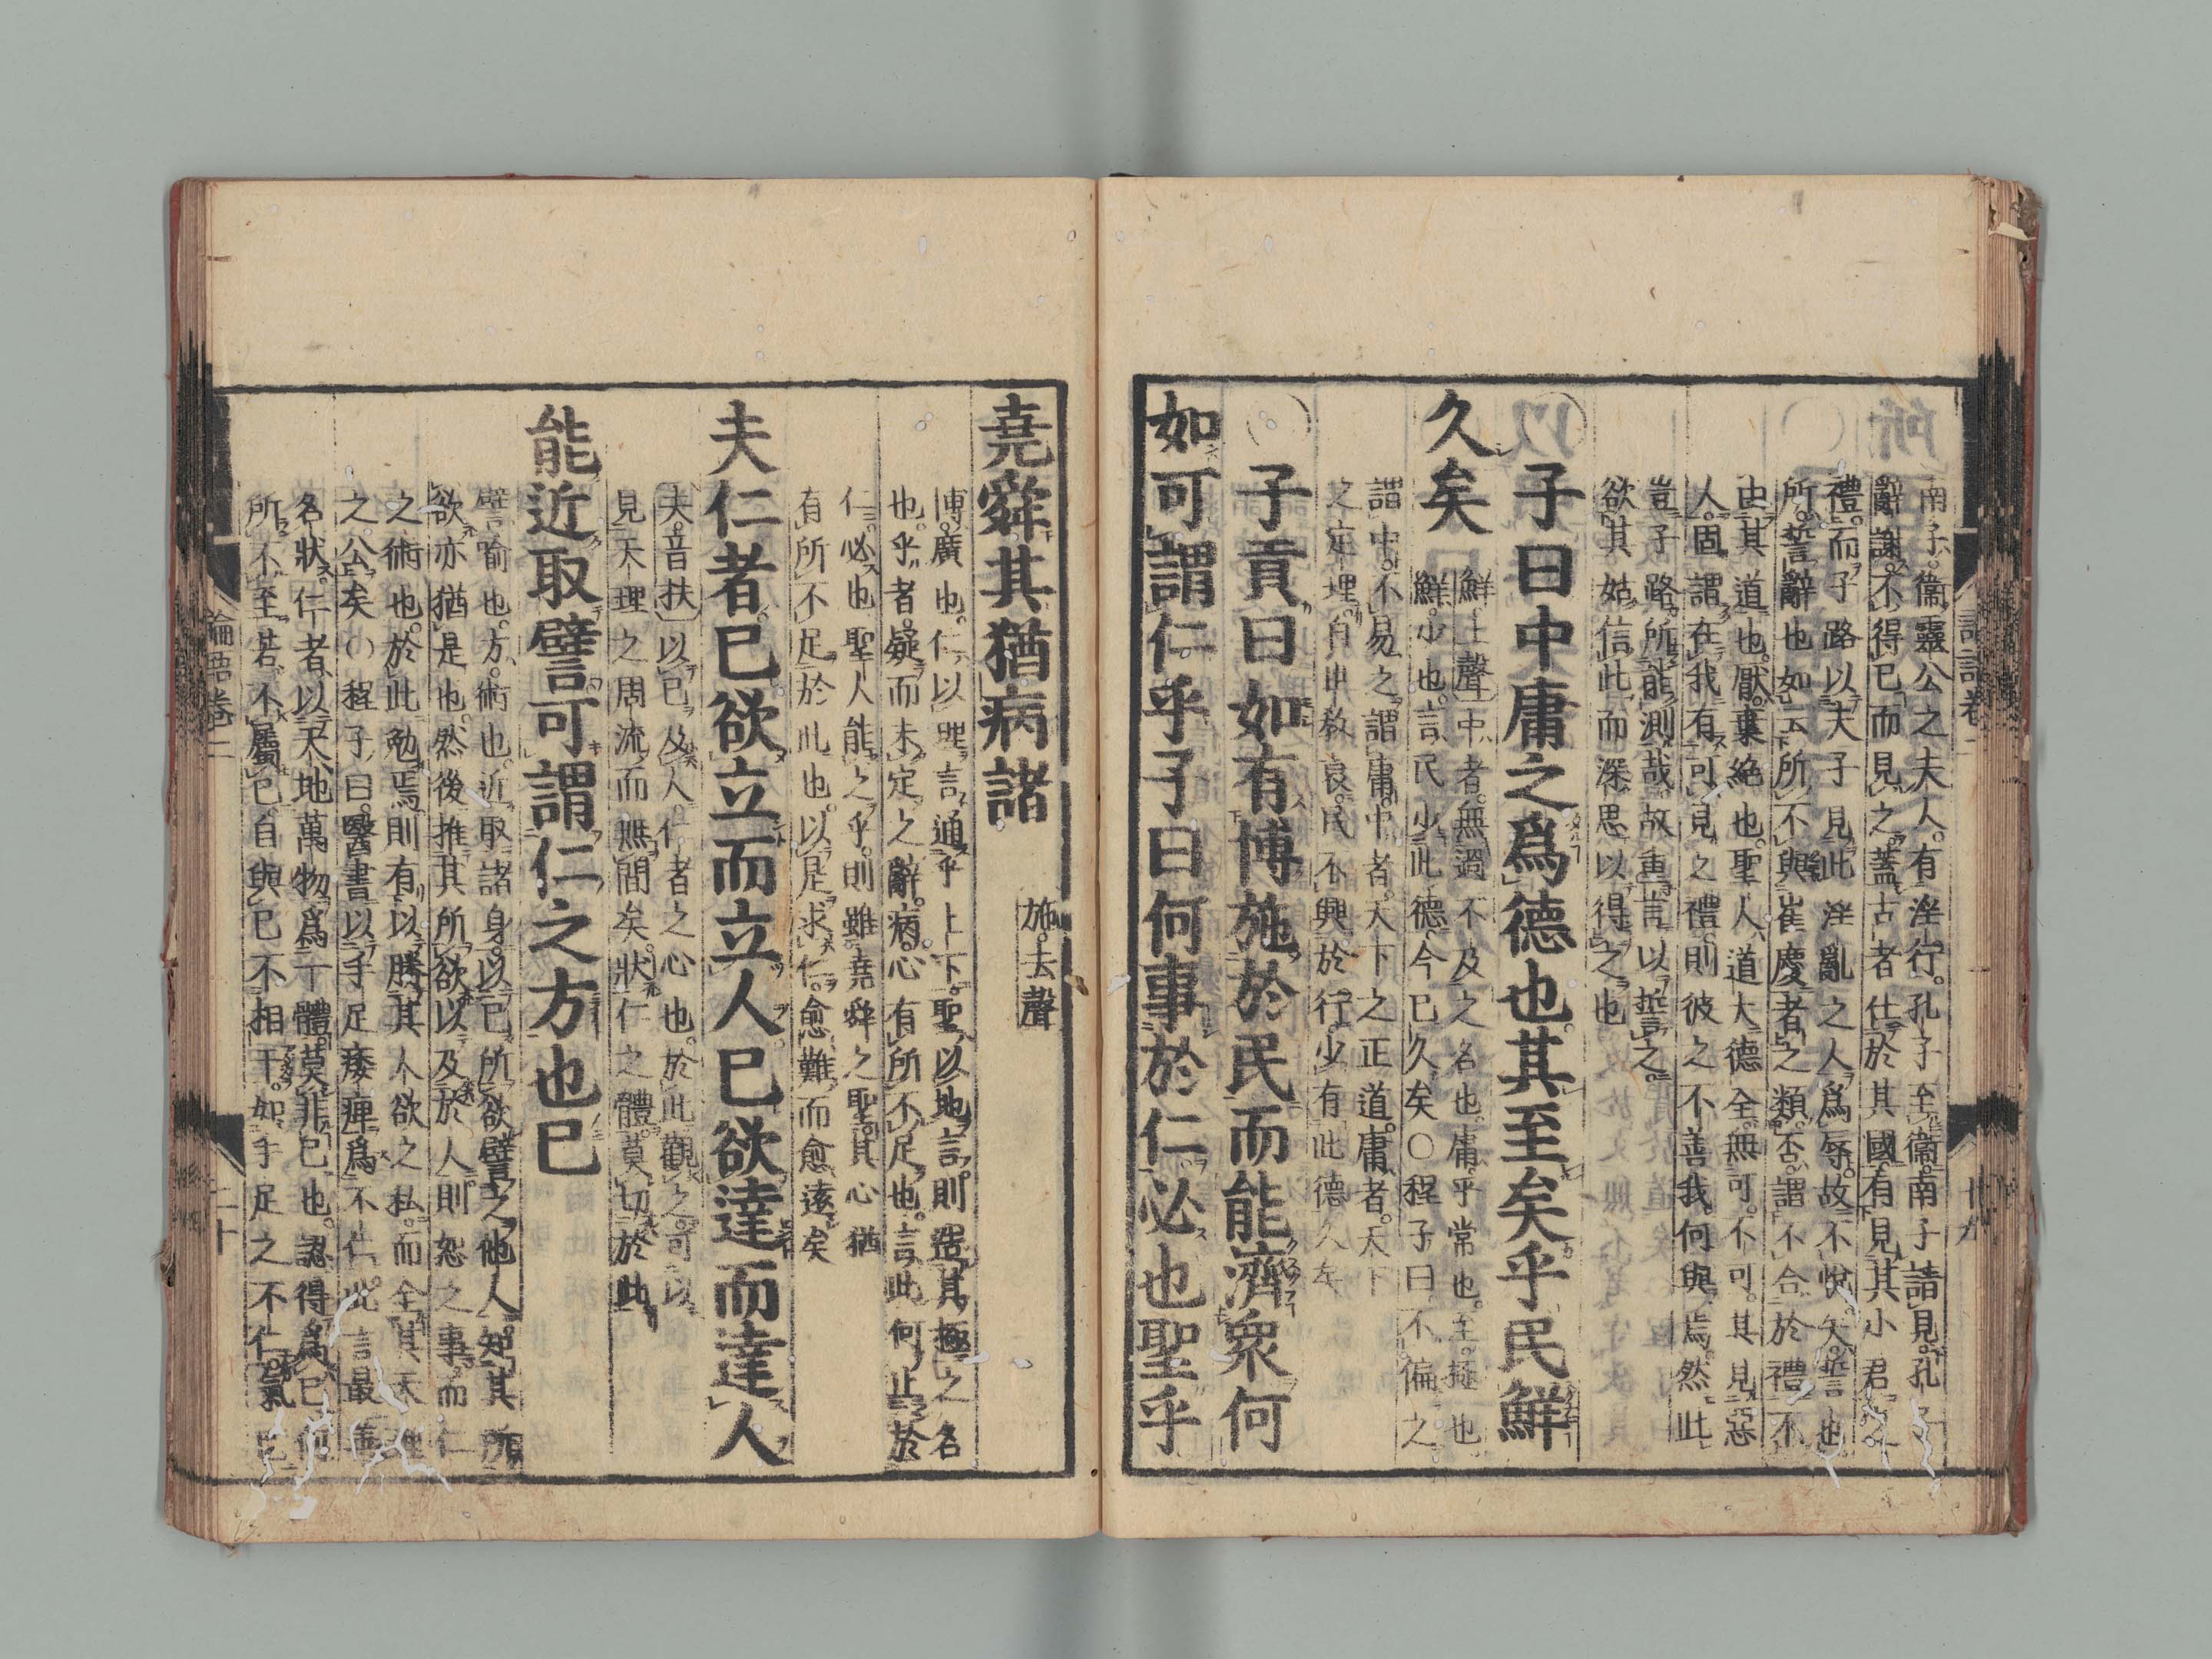 南子衞靈公之夫人有淫行孔子至衞南子請見孔子
辭謝不得已而見之蓋古者仕於其國有見其小君之
禮而子路以夫子見此淫亂之人爲辱故不悅矢誓也
所誓辭也如云所不與崔慶者之類否謂不合於禮不
由其道也厭棄絶也聖人道大德全無可不可其見惡
人固謂在我有可見之禮則彼之不善我何與焉然此
豈子路所能測哉故重言以誓之
欲其姑信此而深思以得之也
子曰中庸之爲德也其至矣乎民鮮
久矣
鮮上聲中者無過不及之名也庸平常也至極也
鮮少也言民少此德今已久矣〇程子曰不偏之
謂中不易之謂庸中者天下之正道庸者天下
之定理自世教衰民不興於行少有此德久矣
〇子貢曰如有博施於民而能濟衆何
如可謂仁乎子曰何事於仁必也聖乎
論語卷二 十九
堯舜其猶病諸
施去聲
博廣也仁以理言通乎上下聖以地言則造其極之名
也乎者疑而未定之辭病心有所不足也言此何止於
仁必也聖人能之乎則雖堯舜之聖其心猶
有所不足於此也以是求仁愈難而愈遠矣
夫仁者已欲立而立人已欲達而達人
夫音扶以已及人仁者之心也於此觀之可以
見天理之周流而無間矣狀仁之體莫切於此
能近取譬可謂仁之方也已
譬喻也方術也近取諸身以已所欲譬之他人知其所
欲亦猶是也然後推其所欲以及於人則恕之事而仁
之術也於此勉焉則有以勝其人欲之私而全其天理
之公矣〇程子曰醫書以手足痿痺爲不仁此言最善
名狀仁者以天地萬物爲一體莫非已也認得爲已何
所不至若不屬已自與已不相干如手足之不仁氣已
論語卷二 二十